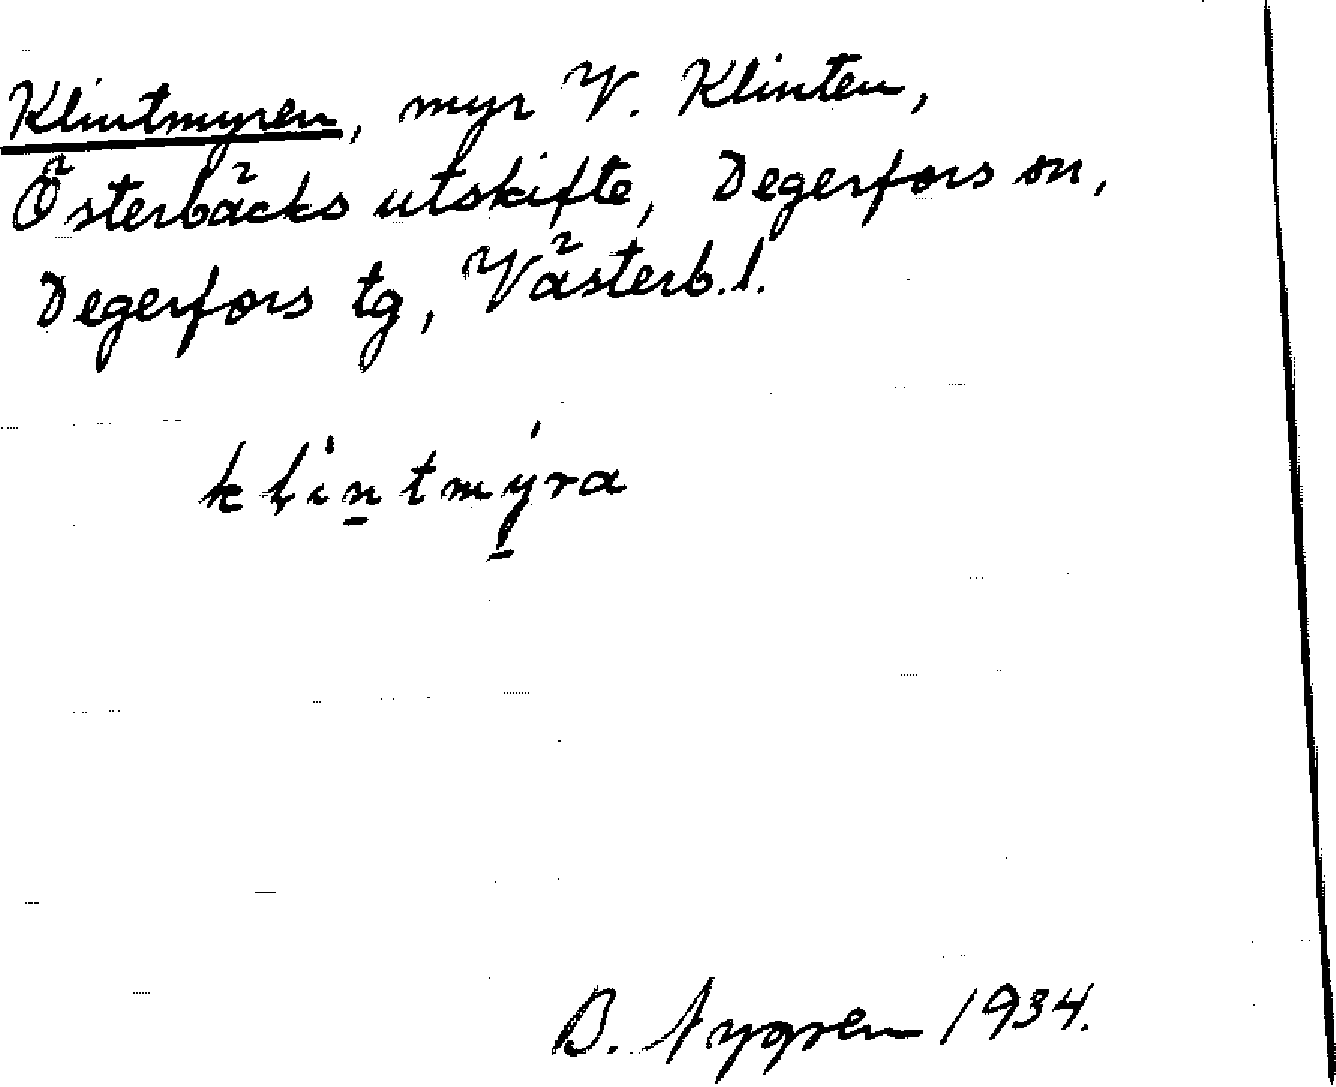 Klintmyren, myr V. Klinten,
Österbäcks utskifte, Degerfors sn,
Degerfors tg, Västerb. l.
klin̲tmý̲ra
B. Nygren 1934.